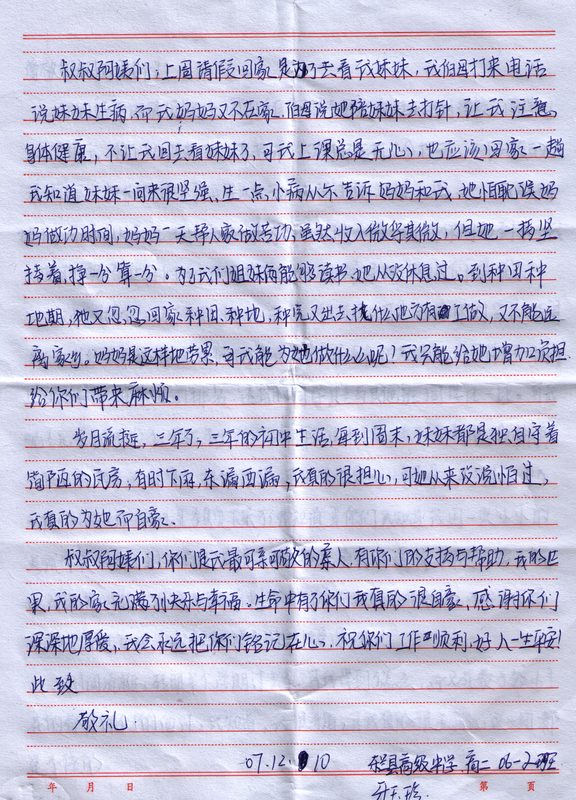 叔叔阿姨们：上周请假回家是为了去看我妹妹，我伯母打来电话
说妹妹生病，而我妈妈又不在家，伯母说她陪妹妹去打针，让我注意
身体健康，不让我回去看妹妹了，可我上课总是无心，也应该回家一趟
我知道妹妹一向来很坚强、生一点小病从不告诉妈妈和我，她怕耽误妈
妈做功时间，妈妈一天帮人家做苦功，虽然收入微乎其微，但她一样坚
持着，挣一分算一分。为了我们姐妹俩能够读书，她从没休息过。到种田种
地期，她又忽忽回家种田、种地，种完又出去找什么地方有工做，又不能远
离家乡。妈妈是这样地劳累，可我能为她做什么呢！我只能给她增加负担
给你们带来麻烦。
岁月流逝，三年了，三年的初中生活，每到周末，妹妹都是独自守着
简陋的瓦房，有时下雨，东漏西漏，我真的很担心，可她从来没说怕过，
我真的为她而自豪。
叔叔阿姨们，你们是我最可亲可敬的亲人，有你们的支持与帮助，我的
我的家充满了快乐与幸福。生命中有了你们我真的很自豪，感谢你们
深深地厚爱，我会永远把你们铭记在心，祝你们工作顺利，好人一生平安！
此致
敬礼.
07.12.10 东兰县高级中学 高二06-2班
年 月 日 第 页